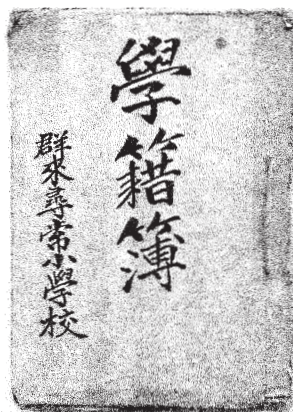 學籍簿
群来尋常小學校